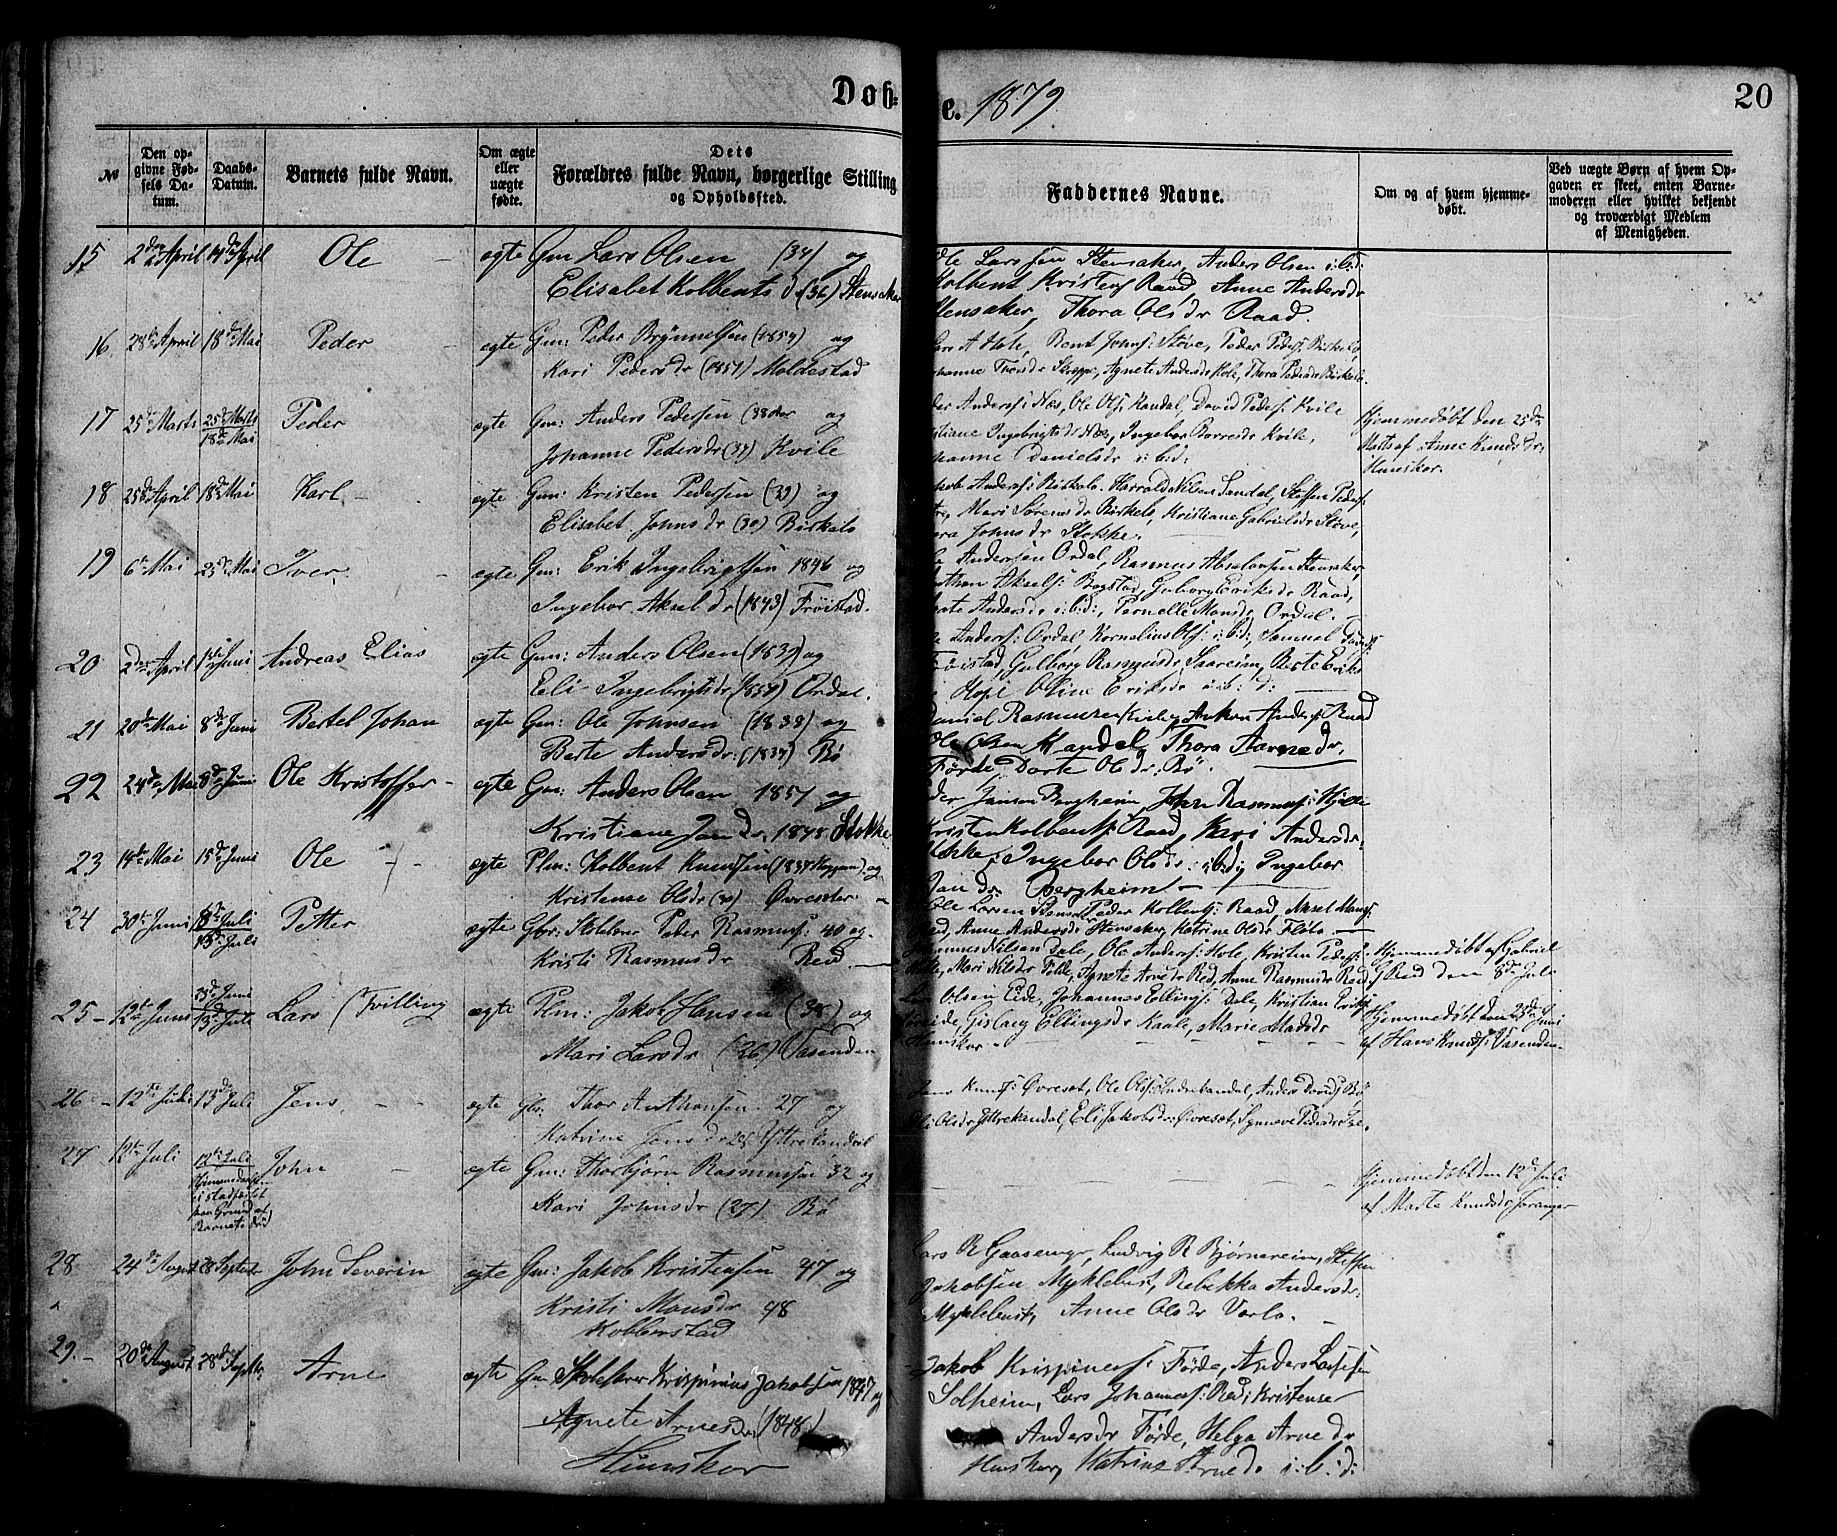 Dob= e. 1879
20
№
Den opgivne Fødsels Datum.
Daabs-Datum.
Barnets fulde Navn.
Om ægte eller uægte fødte.
Dets Forældres fulde Navn, borgerlige Stilling og Opholdssted.
Faddernes Navne.
Om og af hvem hjemmedøbt.
Ved uægte Børn af hvem Opgaven er skeet, enten Barnemoderen eller hvilket bekjendt og troværdigt Medlem af Menigheden.
15 2den April 14de April Ole - ægte Gm Lars Olsen (34) og
Elisabet Kolbents d. (36) Stensaker
Ole Larssen Stensaker, Anders Olsen i:b:d:
Kolbent Kristens Raad, Anne Andersdr
Stensaker, Thora Olsdr Raad.
16. 28de April 18de Mai Peder - ægte Gm: Peder Brynnelsen (1854) og
Kari Pedersdr (1851) Moldestad
Lars A Hole, Bent Johns: Støve, Peder Peders: Birkelo
Johanne Toresdr Skoppe, Agnete Andersdr Hole, Thora Pedersdr Birkelo.
17 25de Marts 25de Marts 18de Mai Peder ægte Gm: Anders Pedersen (38) og
Johanne Pedersdr (34) Kvile
Anders: Næs, Ole Ols: Kandal, David Peders: Kvile
Ingebrigtsdr Næs, Ingebor Kvile,
Johanne Danielsdr i:b:d:
Hjemmedøbt den 25de
Marts af Anne Knuds dr.
Hunskor.
18 25de April 18de Mai Karl - ægte Gm: Kristen Pedersen (39) og
Elisabet Johnsdr (30) Birkelo
Jakob Anders: Birkelo. Harrald Nilsen Sandal, Steffen Peders:
Mari Sørensdr Birkelo, Kristiane Gabrielsdr Støve,
Johnsdr Stokke.
19 6te Mai 25de Mai Iver - ægte Gm: Erik Ingebrigtsen 1846 og
Ingebor Aksel dr (1843) Frøistad.
Andersen Ordal, Rasmus Absalonsen Stensaker,
Aksels: Bogstad, Guborg Eriksdr Raad,
Andersdr i:b:d:, Pernelle Monsdr Ordal.
20 2den April 1ste Juni Andreas Elias ægte Gm: Anders Olsen (1839) og
Eli Ingebrigtsdr (1854) Ordal.
Anders: Ordal, Kornelius Ols: i:b:d:, Samuel
Frøistad, Gulborg Rasmusdr Saareim, Berte Eriks
Hope Oline Eriksdr i:b:d:
21 20de Mai 8de Juni Bertel Johan ægte Gm: Ole Johnsen (1838) og
Berte Andersdr: (1834) Bø
Daniel Rasmusen Anders: Raad
Ole Olsen Kandal, Thora Aarnedr,
Førde Dorte Olsdr. Bø.
22 24de Mai 8de Juni Ole Kristoffer - ægte Gm: Anders Olsen 1851 og
Kristiane Jan Dr. 1848 Stokke
Peder Jansen Bergheim, John Rasmus: Hjelle
Kristen Kolbents: Raad, Kari Andersdr.
Stokke, Ingebor Olsdr. i:b:d; Ingebor
Jan dr. Bergheim -
23 14de Mai 15de Juni Ole - ægte Plm: Kolbent Knutsen (1834 og
Kristense Olsdr (30) Øvreseter
Ole Larsen Peder Kolbents: Raad, Aksel Mons:
Anne Andersdr Stensaker, Katrine Olsdr Fløto.
24 30te Juni 8de Juli 13de Juli Petter ægte Gbr: Skolelærer Peder Rasmus: 40 og
Kristi Rasmusdr Red.
Nilsen Dale, Ole Anders: Hole, Kristen Peders:
Mari Nilsdr Felde, Agnete Arnedr Red, Anne Rasmusdr Red.
Hjemmedøbt af Gabriel
G Red den 8de Juli
25 - 12te Juni 23de Juni 13de Jule Lars (Tvilling ægte Plm: Jakob Hansen (38) og
Mari Larsdr (26) Vasenden
Olsen Eide, Johannes Ellings: Dale, Kristian Eriks:
Gislaug Ellingsdr Kaale, Marie Madsdr
Hunskor.
Hjemmedøbt den 23de Juni
af Hans Knuds: Vasenden.
26 - 12te Juli 13de Juli Jens. - - ægte Gbr. Thor Anthonsen 27 og
Katrine Jensdr 25 Yttrekandal
Jens Knuts: Øvreset, Ole Ols: Indrekandal, Anders Davids: Bø
Olsdr Yttrekandal, Eli Jakobsdr: Øvreset, Synneve Pedersdr
27 12te Juli 12te Juli John - ægte Gm: Thorbjørn Rasmusen 32 og
Kari Johnsdr (27) Bø
Hjemmedaab
ei stadfæstet
paa Grund af
Barnets død
Hjemmedøbt den 12de Juli
af Marte Knudsdr Foranger
28 24de August 28 Septebr John Severin ægte Gm: Jakob Kristensen 47 og
Kristi Monsdr 48
Kobberstad
Lars R Gaasemyr, Ludvig R Bjørnereim, Steffen
Jakobsen Myklebust, Rebekka Andersdr:
Myklebust, Anne Olsdr Vorlo.
29. - 20de August 28de Septbr. Arne ægte Gm Skolelærer Krispinius Jakobsen 1847 og
Agnete Arnesdr (1848)
Hunskor
Jakob Krispines: Førde, Anders Lassesen
Solheim, Lars Johannes: Red, Kristense
Andersdr Førde, Helga Arne dr
Hunskor, Katrine Arnedr i:b:d: